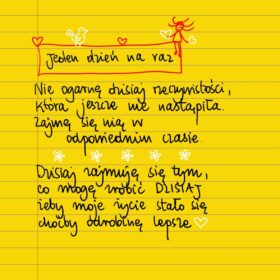 Jeden dzień na raz
Nie ogarnę dzisiaj rzeczywistości,
która jeszcze nie nastąpiła.
Zajmę się nią w
odpowiednim czasie.
Dzisiaj zajmuję się tym,
co mogę zrobić DZISIAJ
żeby moje życie stało się
choćby odrobinę lepsze